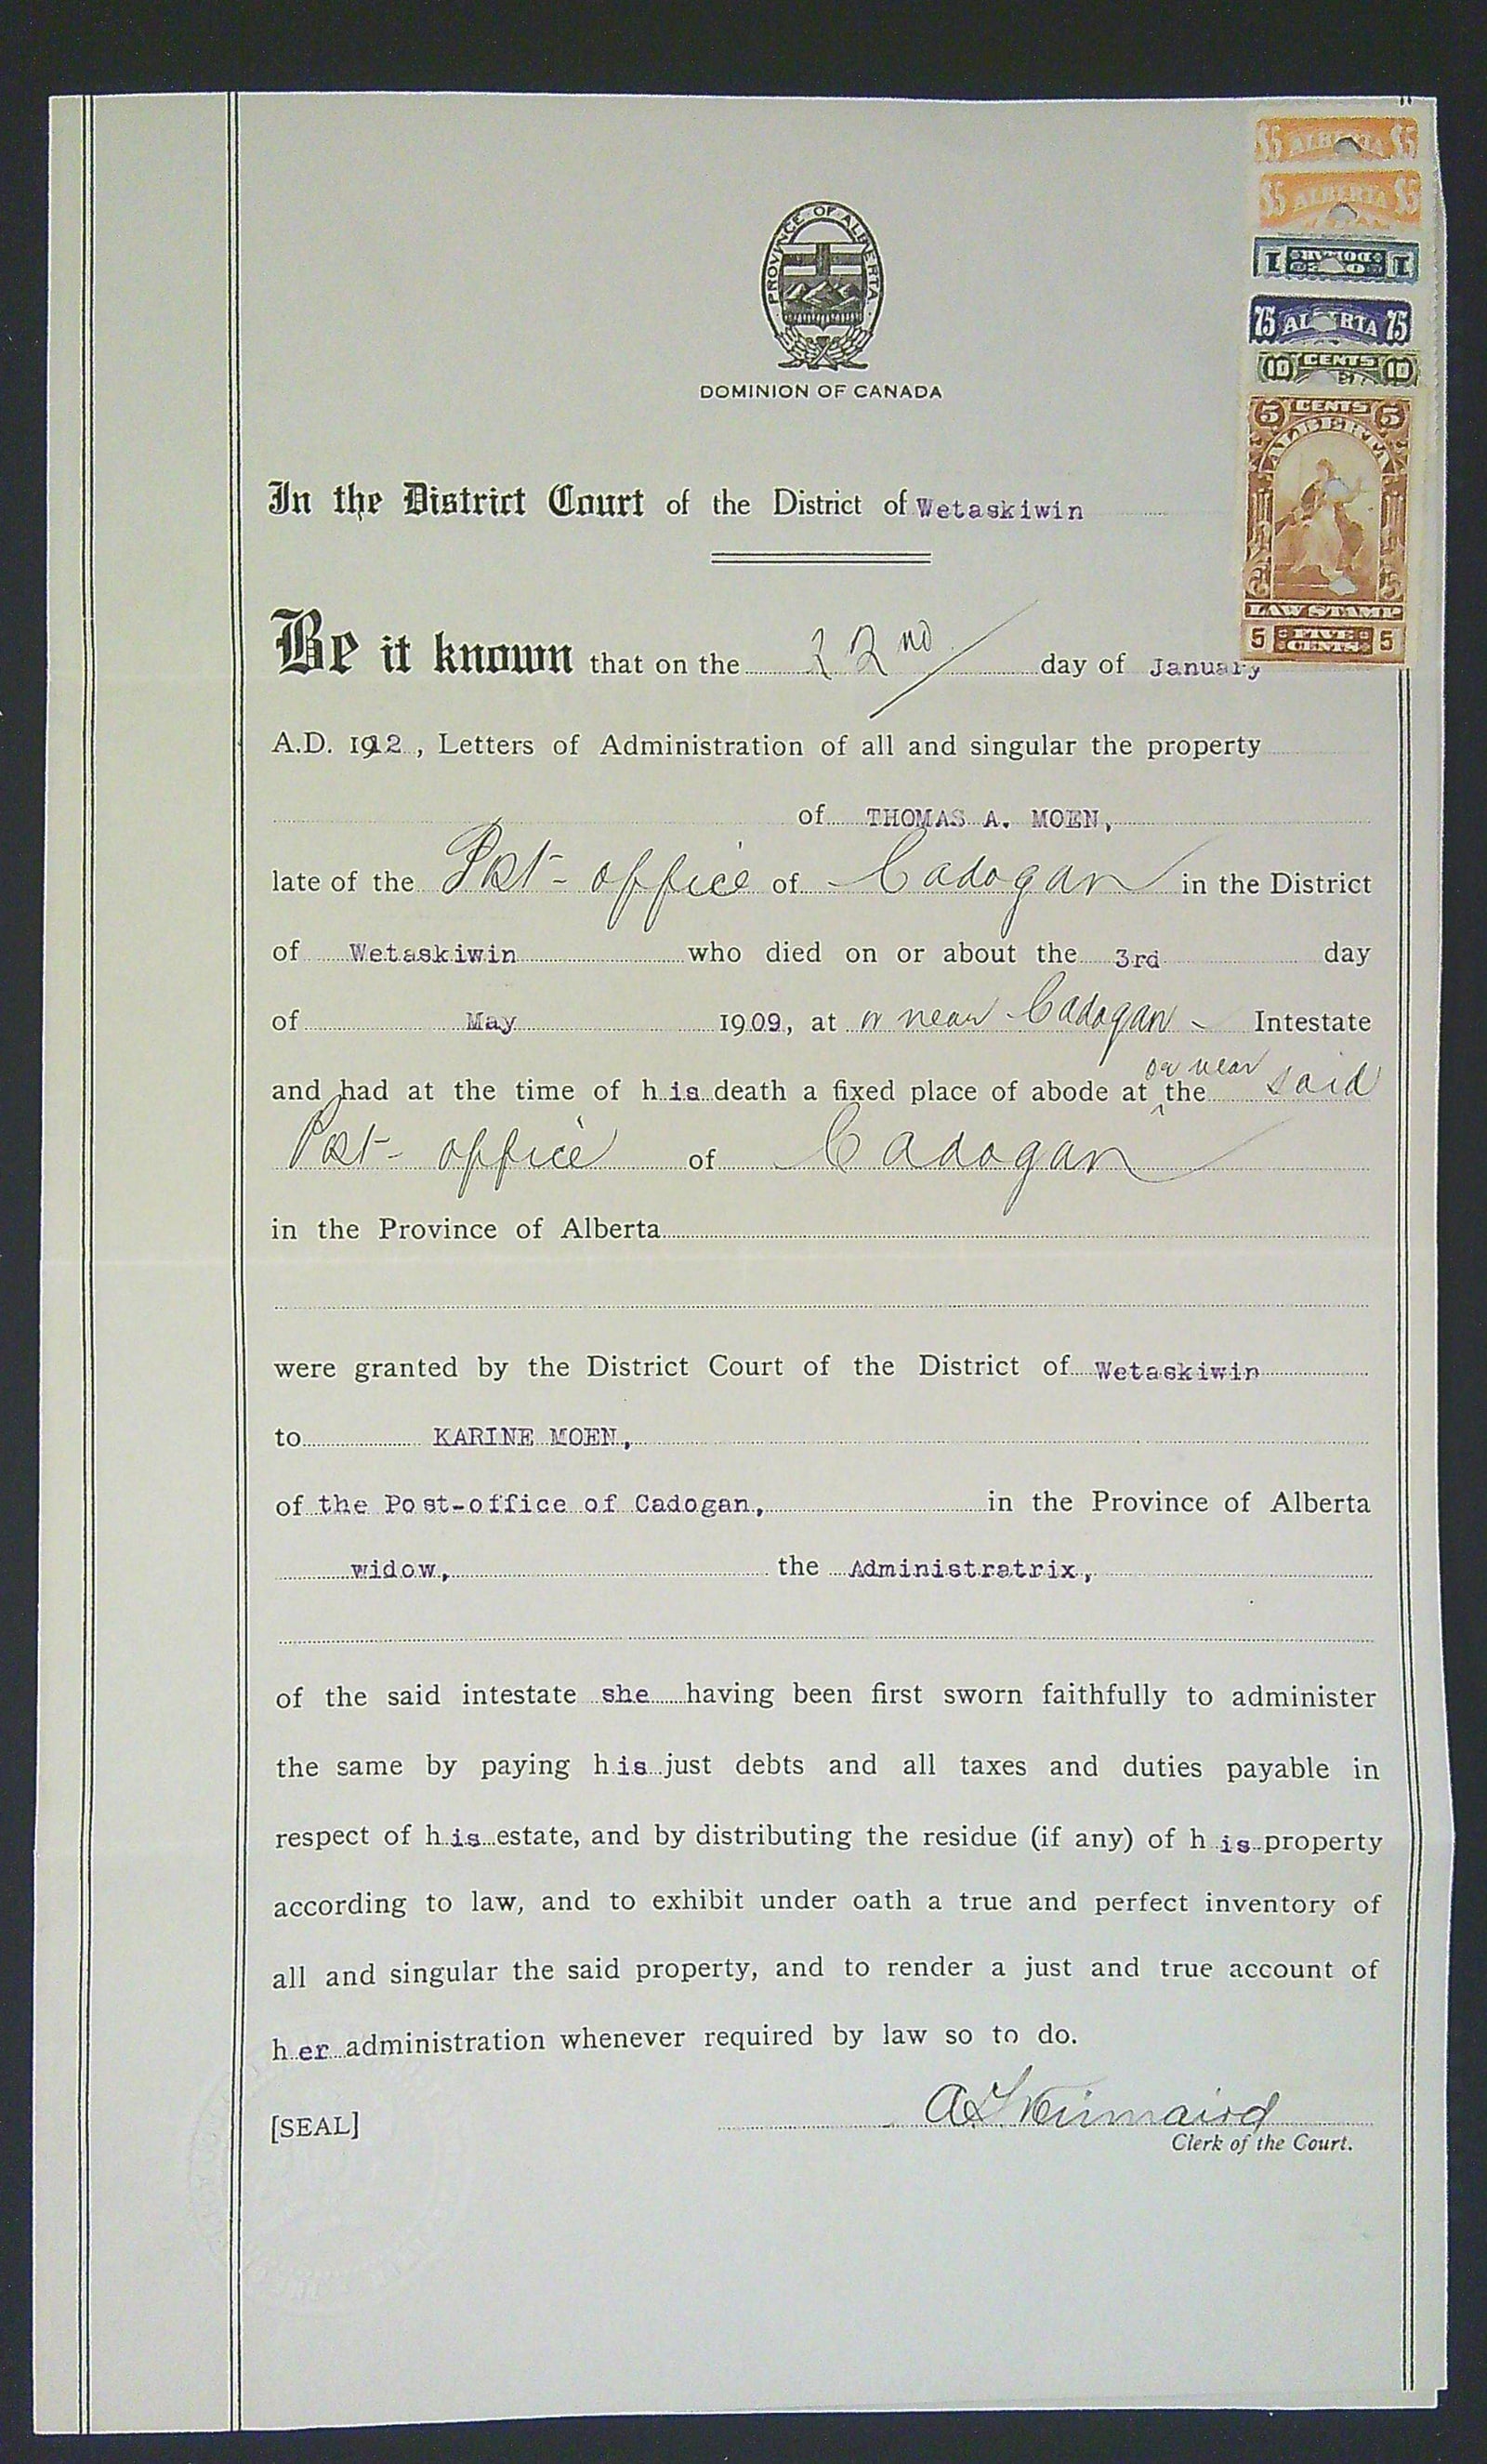 PROVINCE OF ALBERTA
DOMINION OF CANADA
$5 ALBERTA $5
$5 ALBERTA $5
1 ONE DOLLAR 1
75 ALBERTA 75
10 CENTS 10
5 CENTS 5
ALBERTA
LAW STAMP
5 FIVE CENTS 5
In the District Court of the District of Wetaskiwin
Be it known that on the 22nd day of January
A.D. 1912, Letters of Administration of all and singular the property
of THOMAS A. MOEN,
late of the Post-office of Cadogan in the District
of Wetaskiwin who died on or about the 3rd day
of May 1909, at or near Cadogan - Intestate
or near
and had at the time of his death a fixed place of abode at ^ the said
Post-office of Cadogan
in the Province of Alberta
were granted by the District Court of the District of Wetaskiwin
to KARINE MOEN,
of the Post-office of Cadogan, in the Province of Alberta
widow, the Administratrix,
of the said intestate she having been first sworn faithfully to administer
the same by paying his just debts and all taxes and duties payable in
respect of his estate, and by distributing the residue (if any) of his property
according to law, and to exhibit under oath a true and perfect inventory of
all and singular the said property, and to render a just and true account of
her administration whenever required by law so to do.
[SEAL]
Clerk of the Court.